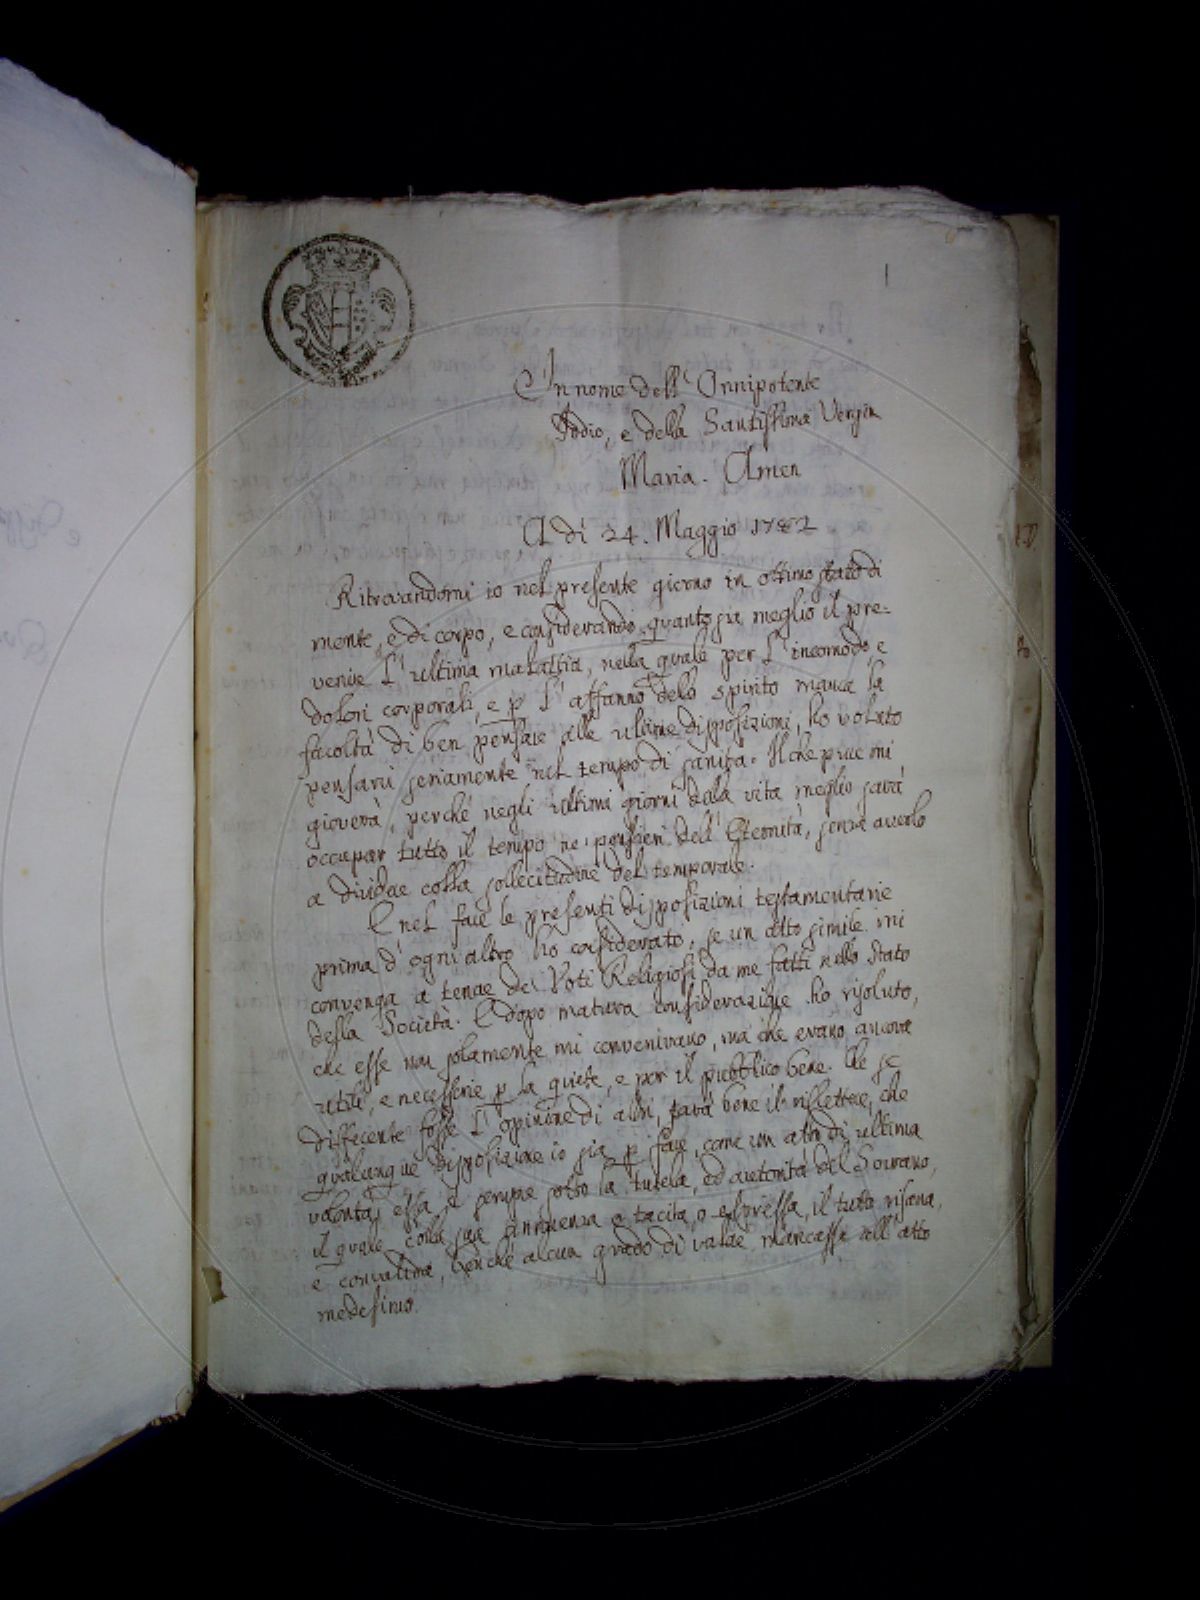 In nome dell' Onnipotente
Iddio, e della Santissima Vergin
Maria. Amen
A di 24. Maggio 1782
Ritrovandomi io nel presente giorno in ottimo stato di
mente, e di corpo, e considerando quanto sia meglio il pre-
venire l'ultima malattia, nella quale per l'incomodo, e
dolori corporali, e p l'affanno dello spirito manca la
facoltà di ben pensare alle ultime disposizioni, ho voluto
pensarvi seriamente nel tempo di sanità. Il che pure mi
gioverà, perchè negli ultimi giorni della vita meglio sarà
occupar tutto il tempo ne' pensieri dell' Eternità, senza averlo
a dividere colla sollecitudine del temporale.
E nel fare le presenti disposizioni testamentarie
prima d'ogni altro ho considerato, se un atto simile mi
convenga a tenore de' Voti Religiosi da me fatti nello Stato
della Società. E dopo matura considerazione ho risoluto,
che esse non solamente mi convenivano, ma che erano ancora
utili, e necessarie p la quiete, e per il pubblico bene. Che se
differente fosse l'opinione di altri, sarà bene il riflettere, che
qualunque disposizione io sia p fare, come un atto di ultima
volontà, essa è sempre sotto la tutela, ed autorità del Sovrano,
il quale colla sua annuenza o tacita, o espressa, il tutto risana,
e convalida, benchè alcun grado di valore mancasse all' atto
medesimo.